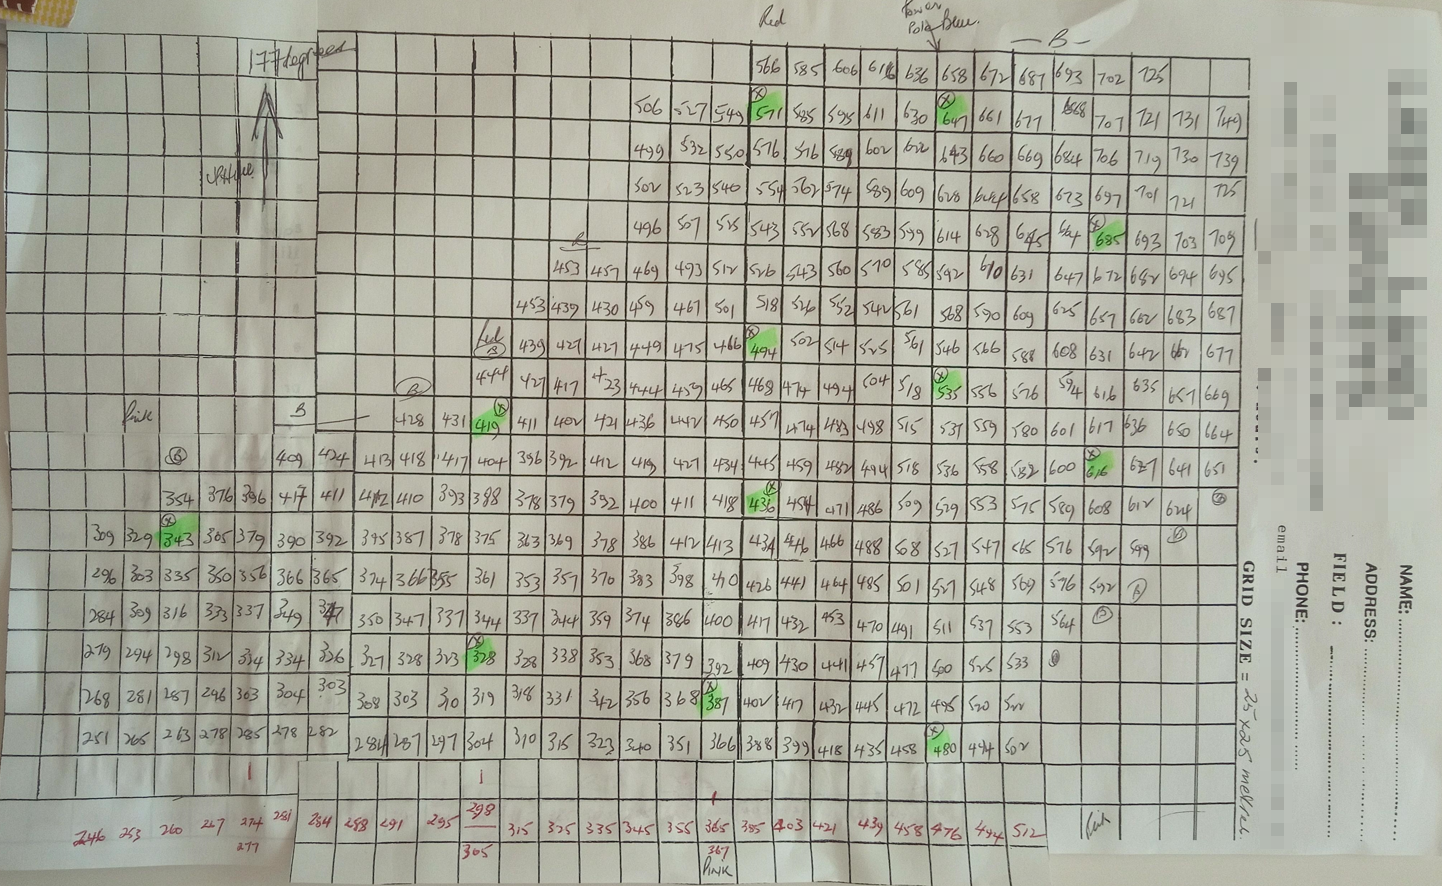 Red
Tower
Pole Blue.
— B —
177 degrees
566 585 606 616 636 658 672 681 693 702 725
506 527 549 571 585 595 611 630 647 661 677 688 707 721 731 749
UPHILL
499 532 550 576 576 589 602 622 643 660 669 684 706 719 730 739
502 523 540 554 562 574 589 609 628 644 658 673 697 701 721 725
496 507 525 543 552 568 583 599 614 628 645 664 685 693 703 709
453 457 469 493 512 526 543 560 570 585 592 610 631 647 672 682 694 695
453 439 430 459 467 501 518 526 552 542 561 568 590 609 625 657 662 683 687
Red
B 439 427 427 449 475 466 494 502 514 525 561 546 566 588 608 631 642 662 677
B 444 427 417 423 444 459 465 468 474 494 504 518 535 556 576 594 616 635 657 669
Pink B 428 431 419 411 402 421 436 442 450 457 474 483 498 515 537 559 580 601 617 636 650 664
B 409 424 413 418 417 404 396 392 412 419 427 434 445 459 482 494 518 536 558 582 600 616 627 641 651
354 376 396 417 411 412 410 393 388 378 379 392 400 411 418 436 454 471 486 509 529 553 575 589 608 612 624
309 329 343 365 379 390 392 395 387 378 375 363 369 378 386 412 413 434 446 466 488 508 527 547 565 576 592 599 B
296 303 335 350 356 366 365 374 366 355 361 353 357 370 383 398 410 426 441 464 485 501 527 548 569 576 592 B
284 309 316 333 337 349 347 350 347 337 344 337 344 359 374 386 400 417 432 453 470 491 511 537 553 564
279 294 298 312 314 334 326 327 328 323 328 328 338 353 368 379 392 409 430 441 457 477 500 525 533
268 281 287 296 303 304 303 308 303 310 319 318 331 342 356 368 387 402 417 432 445 472 495 520 522
251 265 263 278 285 278 282 284 287 297 304 310 315 323 340 351 366 388 399 418 435 458 480 494 502
246 253 260 267 274 281 284 288 291 295 298 315 325 335 345 355 365 385 403 421 439 458 476 494 512 Pink
277 305 367
PINK
NAME:
ADDRESS:
FIELD :
PHONE:
email
GRID SIZE = 25x25 metres.